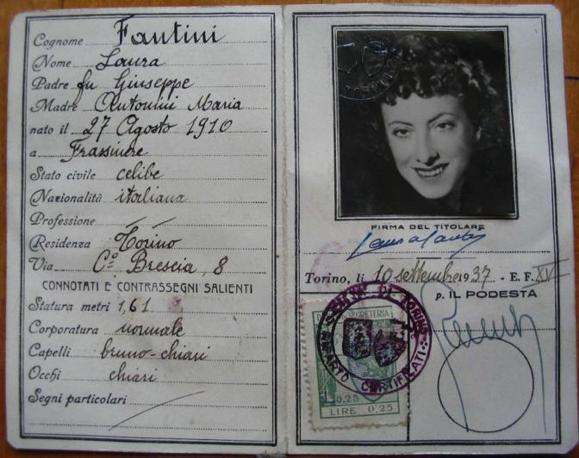 Cognome Fantini
Nome Laura
Padre fu Giuseppe
Madre Antonini Maria
nato il 27 Agosto 1910
a Frassinere
Stato civile celibe
Nazionalità italiana
Professione
Residenza Torino
Via Cº Brescia, 8
CONNOTATI E CONTRASSEGNI SALIENTI
Statura metri 1,61
Corporatura normale
Capelli bruno-chiari
Occhi chiari
Segni particolari
FIRMA DEL TITOLARE
Laura Fantini
Torino, li 10 settembre 1937 - E. F. XV
p. IL PODESTA
SEGRETERIA
CERTIFICATI
0.25 0.25
LIRE 0.25